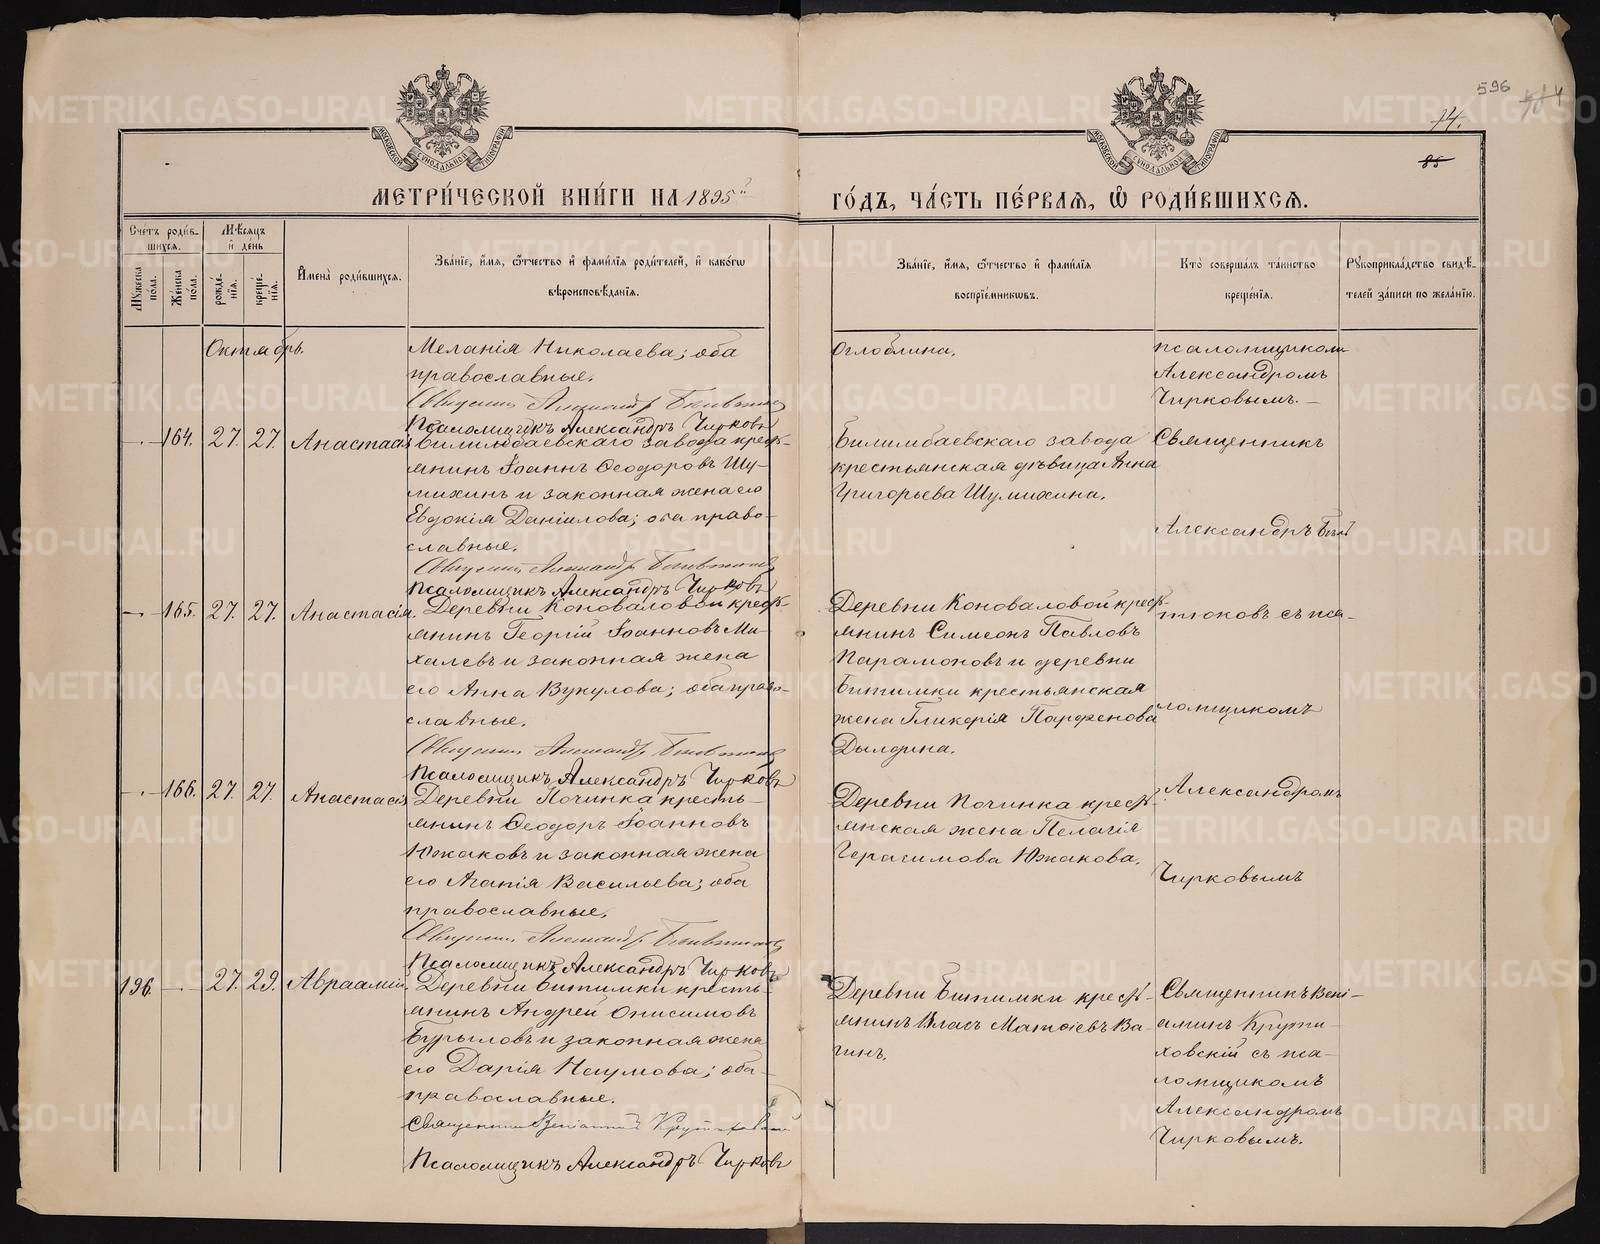 596
14.
85
МОСКОВСКОЙ СѴНОДАЛЬНОЙ ТИПОГРАФІИ
МОСКОВСКОЙ СѴНОДАЛЬНОЙ ТИПОГРАФІИ
МЕТРИ́ЧЕСКОЙ КНИ́ГИ НА 1895й
ГО́ДЪ, ЧА́СТЬ ПЕ́РВАЯ, Ѿ РОДИ́ВШИХСЯ.
Сче́тъ роди́вшихся.
Му́жеска по́ла.
Же́нска по́ла.
Мѣ́сяцъ и де́нь
рожде́нія.
креще́нія.
И҆мена̀ роди́вшихся.
Зва́нїе, и҆́мя, ѻ҆́тчество и҆ фами́лїя роди́телей, и҆ како́гѡ
вѣроисповѣ́данїя.
Зва́нїе, и҆́мя, ѻ҆́тчество и҆ фами́лїя
воспрїе́мникѡвъ.
Кто̀ соверша́лъ та́инство
креще́нїя.
Рꙋкоприкла́дство свидѣ́телей за́писи по жела́нїю.
Октябрь.
Меланія Николаева; оба
православные.
Псаломщикъ Александръ Чирковъ
Оглоблина.
псаломщикомъ
Александромъ
Чирковымъ.—
—.— 164. 27. 27. Анастасія
Билимбаевскаго завода крест-
янинъ Іоаннъ Ѳеодоровъ Шу-
михинъ и законная жена его
Евдокія Даніилова; оба право-
славные.
Псаломщикъ Александръ Чирковъ
Билимбаевскаго завода
крестьянская дѣвица Анна
Григорьева Шумихина.
Священникъ
Александръ
—.— 165. 27. 27. Анастасія.
Деревни Коноваловой крест-
янинъ Георгій Іоанновъ Ми-
халевъ и законная жена
его Анна Вукулова; оба право-
славные.
Псаломщикъ Александръ Чирковъ
Деревни Коноваловой крест-
янинъ Симеонъ Павловъ
Парамоновъ и деревни
Битимки крестьянская
жена Гликерія Парфенова
Дылдина.
тюковъ съ пса-
ломщикомъ
—.— 166. 27. 27. Анастасія
Деревни Починка кресть-
янинъ Ѳеодоръ Іоанновъ
Южаковъ и законная жена
его Агапія Васильева; оба
православные.
Псаломщикъ Александръ Чирковъ
Деревни Починка крест-
янская жена Пелагія
Герасимова Южакова.
Александромъ
Чирковымъ
196. —.— 27. 29. Авраамій.
Деревни Битимки кресть-
янинъ Андрей Онисимовъ
Бурыловъ и законная жена
его Дарія Наумова; оба
православные.
Священникъ Веніаминъ
Псаломщикъ Александръ Чирковъ
Деревни Битимки крест-
янинъ Власъ Матѳіевъ Ва-
гинъ.
Священникъ Вені-
аминъ Крути-
ховскій съ пса-
ломщикомъ
Александромъ
Чирковымъ.
METRIKI.GASO-URAL.RU